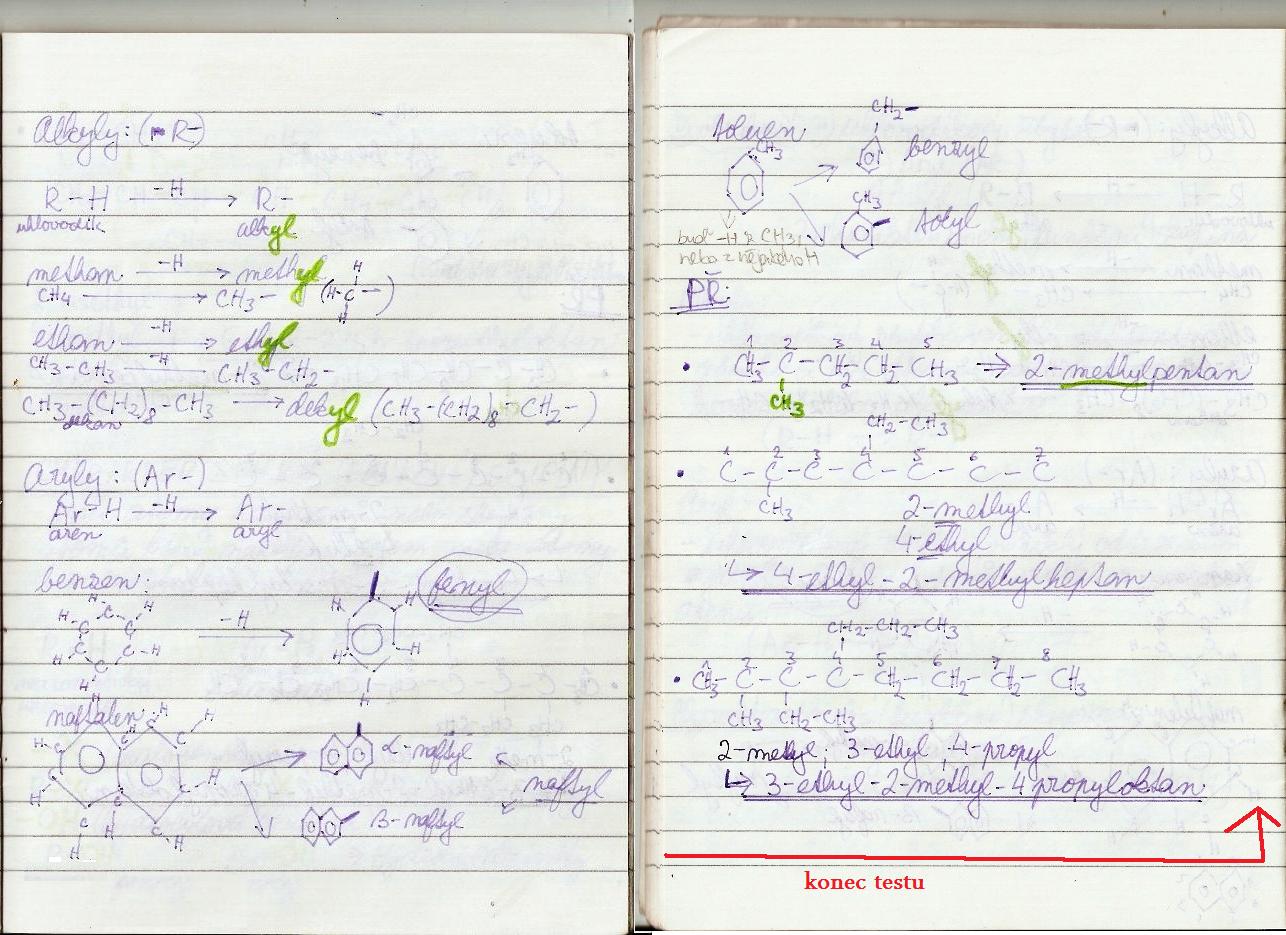 Alkyly: (R-)
R-H -H→ R-
uhlovodík alkyl
methan -H→ methyl
CH4 → CH3- (H-C-)
H
H
ethan -H→ ethyl
CH3-CH3 -H→ CH3-CH2-
CH3-(CH2)8-CH3 → dekyl (CH3-(CH2)8-CH2-)
dekan
Aryly: (Ar-)
Ar-H -H→ Ar-
aren aryl
benzen: -H→ fenyl
naftalen:
α-naftyl
naftyl
β-naftyl
toluen
CH3
CH2-
benzyl
CH3
tolyl
buď -H z CH3,
nebo z nějakého H
PŘ:
1 2 3 4 5
CH3-C-CH2-CH2-CH3 ⇒ 2-methylpentan
CH3
CH2-CH3
1 2 3 4 5 6 7
C-C-C-C-C-C-C
CH3
2-methyl
4-ethyl
↳ 4-ethyl-2-methylheptan
CH2-CH2-CH3
1 2 3 4 5 6 7 8
CH3-C-C-C-CH2-CH2-CH2-CH3
CH3 CH2-CH3
2-metyl, 3-ethyl, 4-propyl
↳ 3-ethyl-2-methyl-4propyloktan
konec testu